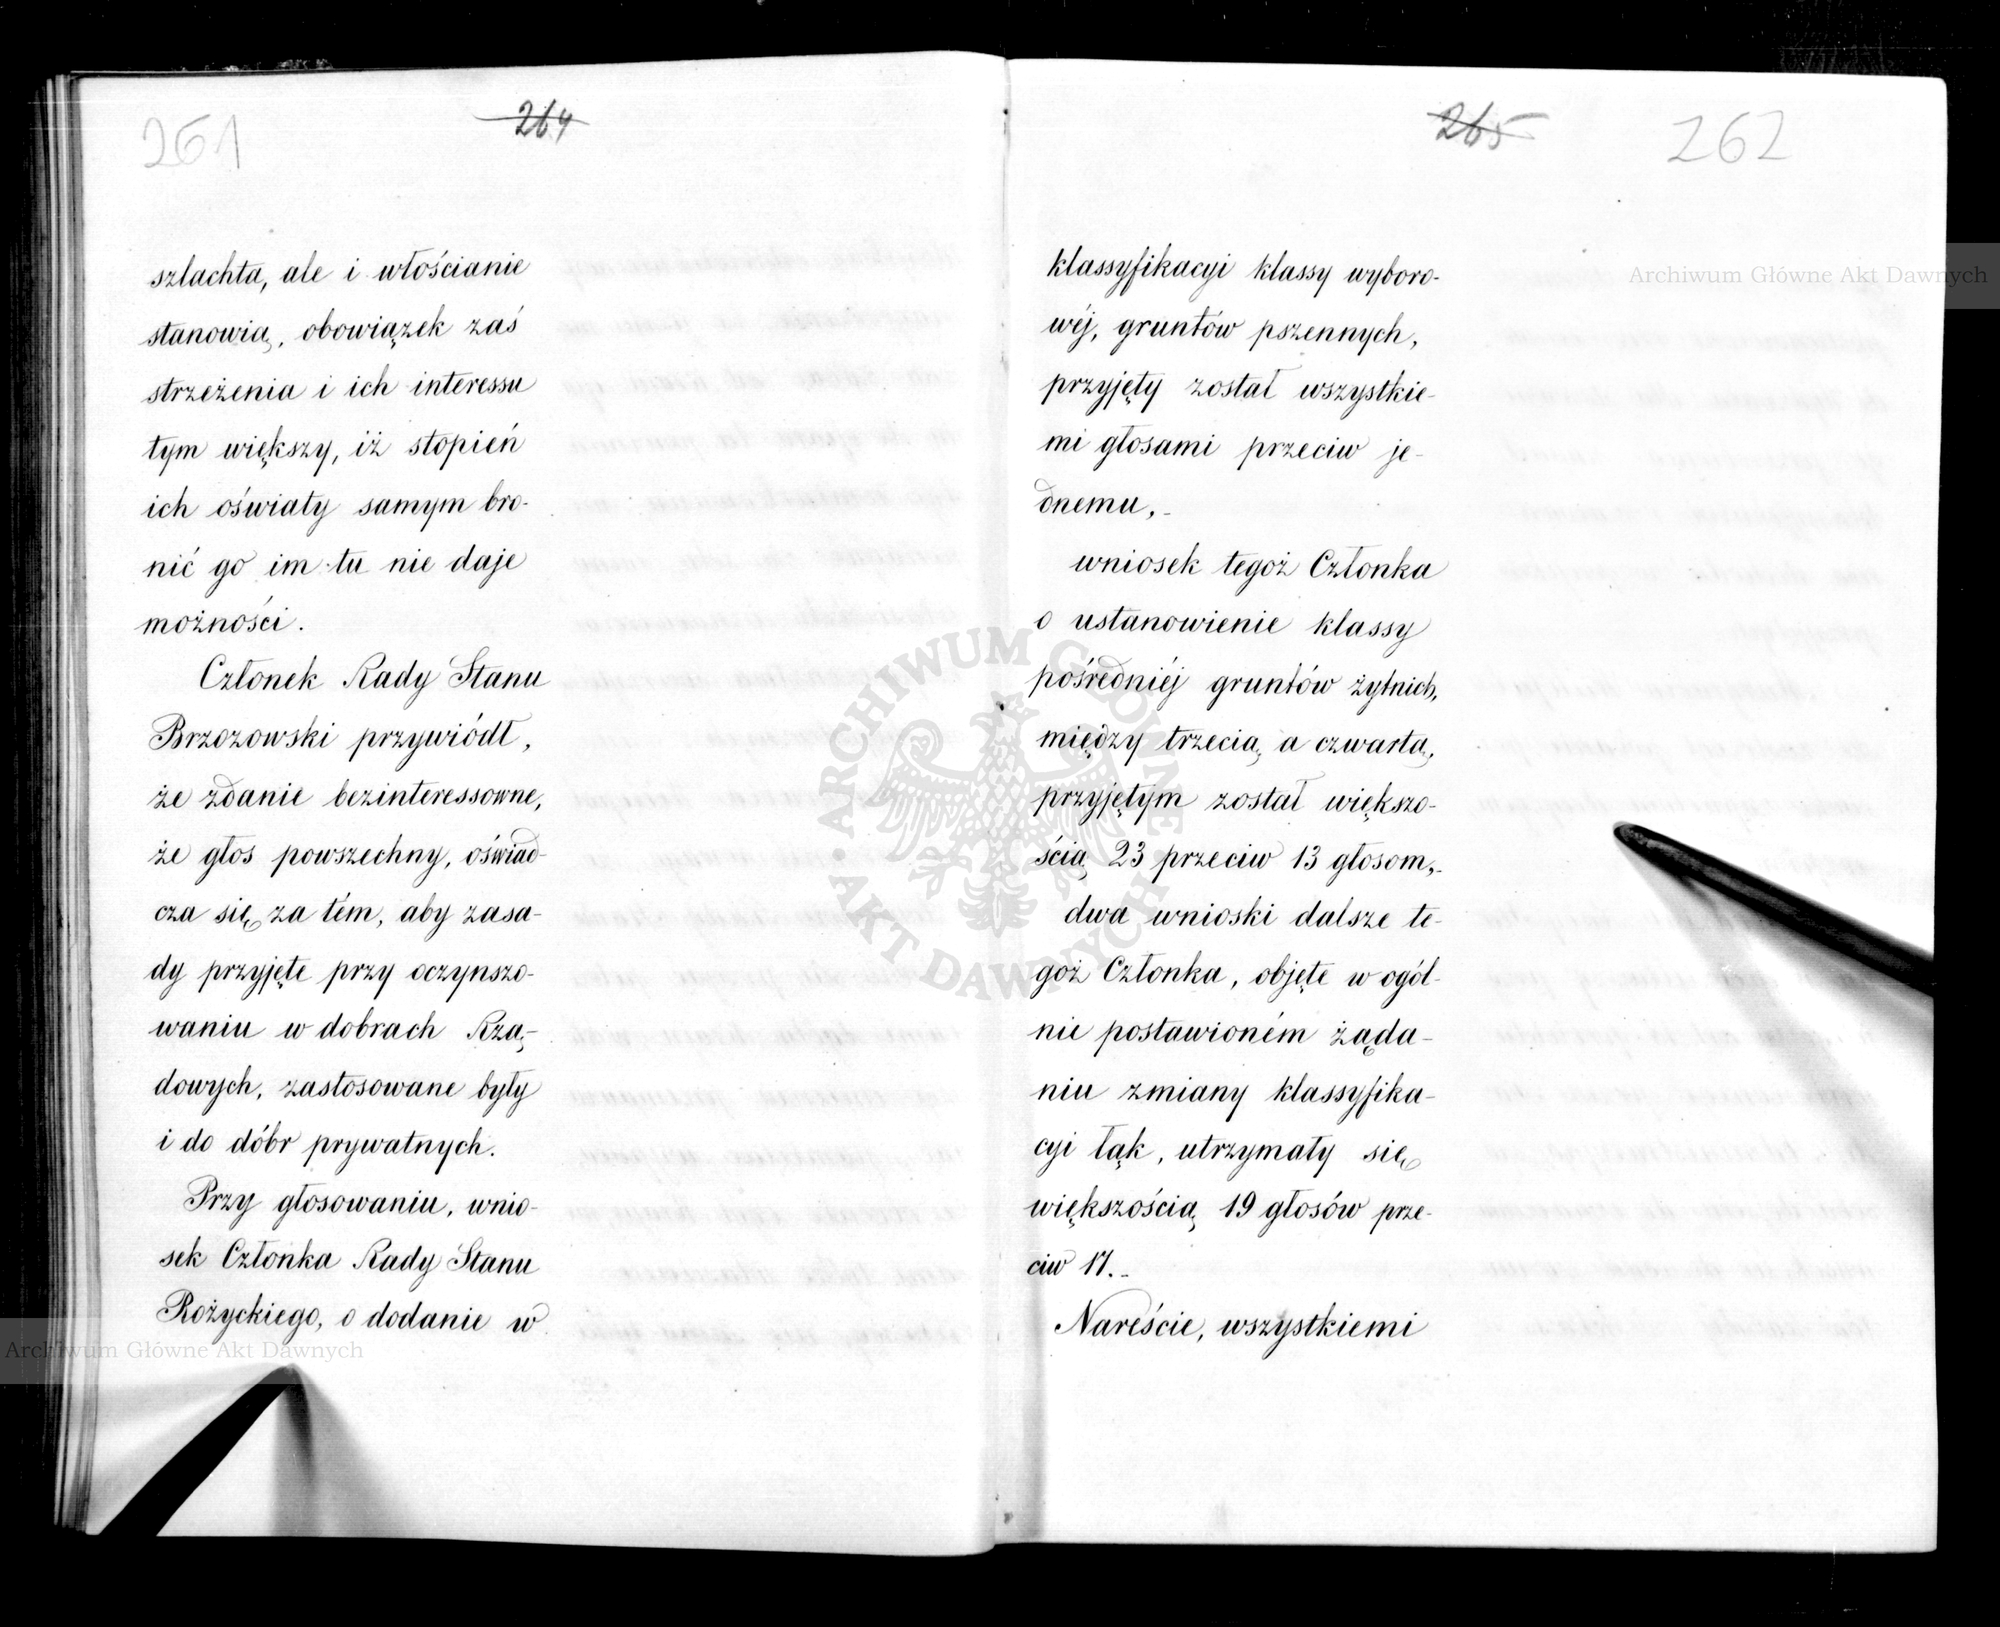 261
264
szlachta, ale i włościanie
stanowią, obowiązek zaś
strzeżenia i ich interessu
tym większy, iż stopień
ich oświaty samym bro-
nić go im tu nie daje
możności.
Członek Rady Stanu
Brzozowski przywiódł,
że zdanie bezinteressowne,
że głos powszechny, oświad-
cza się za tém, aby zasa-
dy przyjęte przy oczynszo-
waniu w dobrach Rzą-
dowych, zastosowane były
i do dóbr prywatnych.
Przy głosowaniu, wnio-
sek Członka Rady Stanu
Rożyckiego, o dodanie w
265
262
klassyfikacyi klassy wyboro-
wéj, gruntów pszennych,
przyjęty został wszystkie-
mi głosami przeciw je-
dnemu,-
wniosek tegoż Członka
o ustanowienie klassy
pośredniéj gruntów żytnich,
między trzecią a czwartą,
przyjętym został większo-
ścią 23 przeciw 13 głosom,-
dwa wnioski dalsze te-
goż Członka, objęte w ogól-
nie postawioném żąda-
niu zmiany klassyfika-
cyi łąk, utrzymały się
większością 19 głosów prze-
ciw 17.-
Nareście, wszystkiemi
Archiwum Główne Akt Dawnych
Archiwum Główne Akt Dawnych
ARCHIWUM GŁÓWNE
AKT DAWNYCH